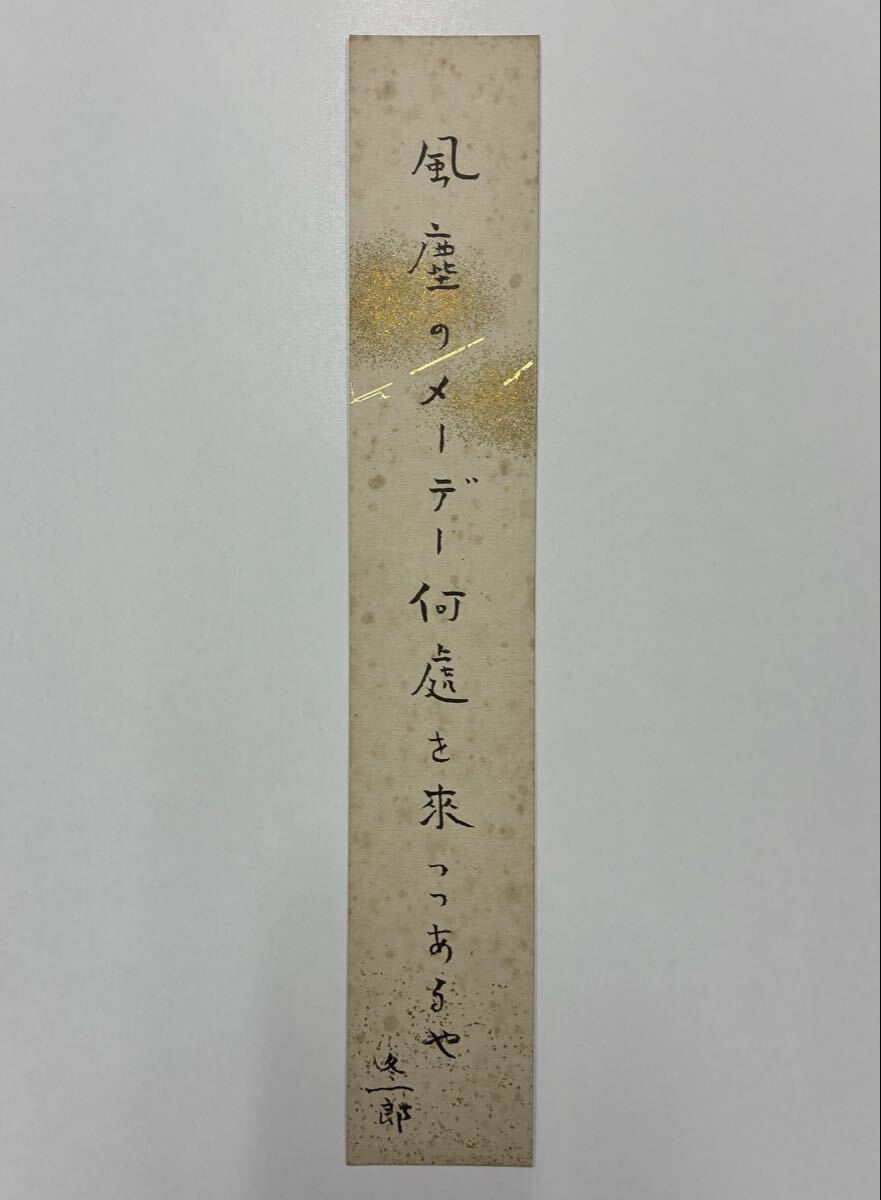 風塵のメーデー何處を來つつあるや
冬一郎